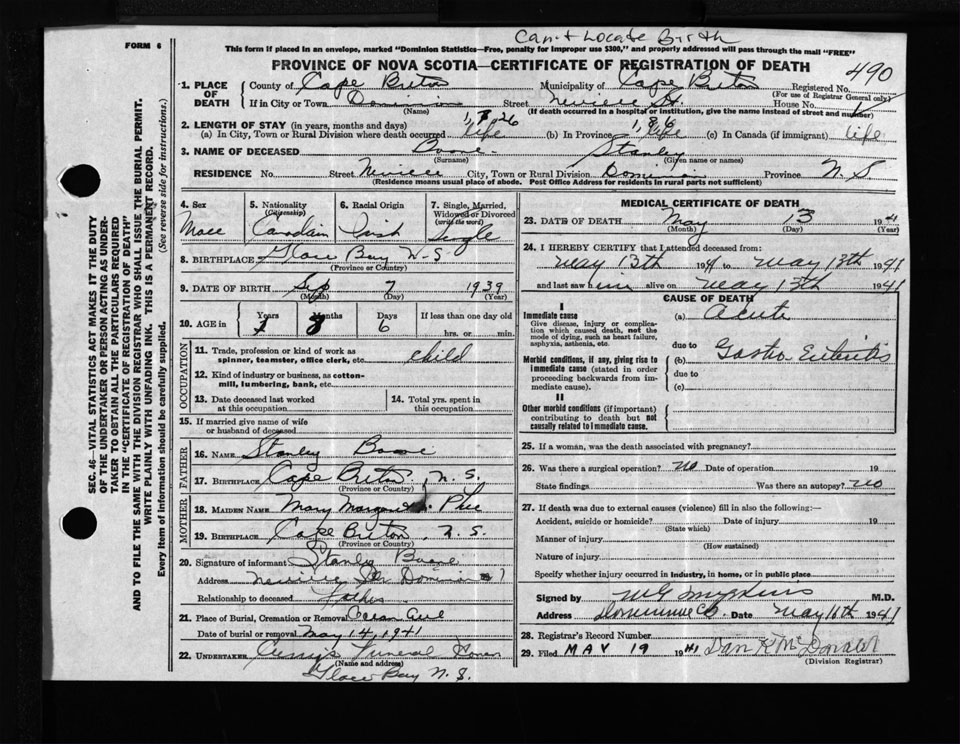 Can't Locate Birth
FORM 6
This form if placed in an envelope, marked "Dominion Statistics—Free, penalty for improper use $300," and properly addressed will pass through the mail "FREE"
PROVINCE OF NOVA SCOTIA—CERTIFICATE OF REGISTRATION OF DEATH
490
1. PLACE OF DEATH County of Cape Breton Municipality of Cape Breton Registered No.
(For use of Registrar General only)
If in City or Town Dominion Street Neville St. House No.
(Name) (If death occurred in a hospital or institution, give the name instead of street and number)
2. LENGTH OF STAY (in years, months and days)
(a) In City, Town or Rural Division where death occurred life (b) In Province life (c) In Canada (if immigrant) life
3. NAME OF DECEASED Boone Stanley
(Surname) (Given name or names)
RESIDENCE No. Street Neville City, Town or Rural Division Dominion Province N.S.
(Residence means usual place of abode. Post Office Address for residents in rural parts not sufficient)
4. Sex 5. Nationality (Citizenship) 6. Racial Origin 7. Single, Married, Widowed or Divorced (write the word)
Male Canadain Irish Single
8. BIRTHPLACE Glace Bay N-S
(Province or Country)
9. DATE OF BIRTH Sep 7 1939
(Month) (Day) (Year)
10. AGE in Years Months Days If less than one day old
1 8 6 hrs. or min.
OCCUPATION
11. Trade, profession or kind of work as spinner, teamster, office clerk, etc. child
12. Kind of industry or business, as cotton-mill, lumbering, bank, etc.
13. Date deceased last worked at this occupation 14. Total yrs. spent in this occupation
15. If married give name of wife or husband of deceased
FATHER
16. NAME Stanley Boone
17. BIRTHPLACE Cape Breton, N.S.
(Province or Country)
MOTHER
18. MAIDEN NAME Mary Margaret
19. BIRTHPLACE Cape Breton, N.S.
(Province or Country)
20. Signature of informant Stanley Boone
Address Neville St. Dominion
Relationship to deceased Father
21. Place of Burial, Cremation or Removal
Date of burial or removal May 14, 1941
22. UNDERTAKER Funeral Home
(Name and address)
Glace Bay N.S.
MEDICAL CERTIFICATE OF DEATH
23. DATE OF DEATH May 13 1941
(Month) (Day) (Year)
24. I HEREBY CERTIFY that I attended deceased from:
May 13th 1941 to May 13th 1941
and last saw him alive on May 13th 1941
CAUSE OF DEATH
I
Immediate cause (a) Acute
Give disease, injury or complication which caused death, not the mode of dying, such as heart failure, asphyxia, asthenia, etc.
due to
Morbid conditions, if any, giving rise to immediate cause (stated in order proceeding backwards from immediate cause).
(b) Gastro Enteritis
due to
(c)
II
Other morbid conditions (if important) contributing to death but not causally related to immediate cause.
25. If a woman, was the death associated with pregnancy?
26. Was there a surgical operation? no Date of operation 19
State findings Was there an autopsy? no
27. If death was due to external causes (violence) fill in also the following:—
Accident, suicide or homicide? Date of injury 19
(State which)
Manner of injury
(How sustained)
Nature of injury
Specify whether injury occurred in industry, in home, or in public place
Signed by M.D.
Address Dominion C.B. Date May 16th 1941
28. Registrar's Record Number
29. Filed MAY 19 1941 Dan K McDonald
(Division Registrar)
SEC. 46—VITAL STATISTICS ACT MAKES IT THE DUTY
OF THE UNDERTAKER OR PERSON ACTING AS UNDER-
TAKER TO OBTAIN ALL THE PARTICULARS REQUIRED
IN THE "CERTIFICATE OF REGISTRATION OF DEATH"
AND TO FILE THE SAME WITH THE DIVISION REGISTRAR WHO SHALL ISSUE THE BURIAL PERMIT.
WRITE PLAINLY WITH UNFADING INK. THIS IS A PERMANENT RECORD.
Every item of information should be carefully supplied. (See reverse side for instructions.)